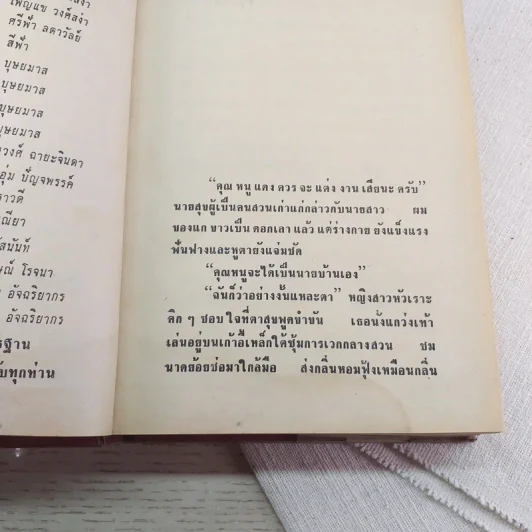 เพ็ญแข วงศ์สง่า
ศรีฟ้า ลดาวัลย์
สีฟ้า
บุษยมาส
บุษยมาส
บุษยมาส
บุษยมาส
วงศ์ ฉายะจินดา
อุ่ม ปัญจพรรค์
าวดี
ณียา
ัสนันท์
ษณ์ โรจนา
อัจฉริยากร
อัจฉริยากร
รฐาน
ับทุกท่าน
“คุณ หนู แดง ควร จะ แต่ง งาน เสียนะ ครับ”
นายสุขผู้เป็นคนสวนเก่าแก่กล่าวกับนายสาว ผม
ของแก ขาวเป็น ดอกเลา แล้ว แต่ร่างกาย ยังแข็งแรง
ฟันฟางและหูตายังแจ่มชัด
“คุณหนูจะได้เป็นนายบ้านเอง”
“ฉันก็ว่าอย่างงั้นแหละตา” หญิงสาวหัวเราะ
คิก ๆ ชอบ ใจที่ตาสุขพูดขำขัน เธอนั่งแกว่งเท้า
เล่นอยู่บนเก้าอี้เหล็กใต้ซุ้มการเวกกลางสวน ชม
นาดย้อยช่อมาใกล้มือ ส่งกลิ่นหอมฟุ้งเหมือนกลิ่น